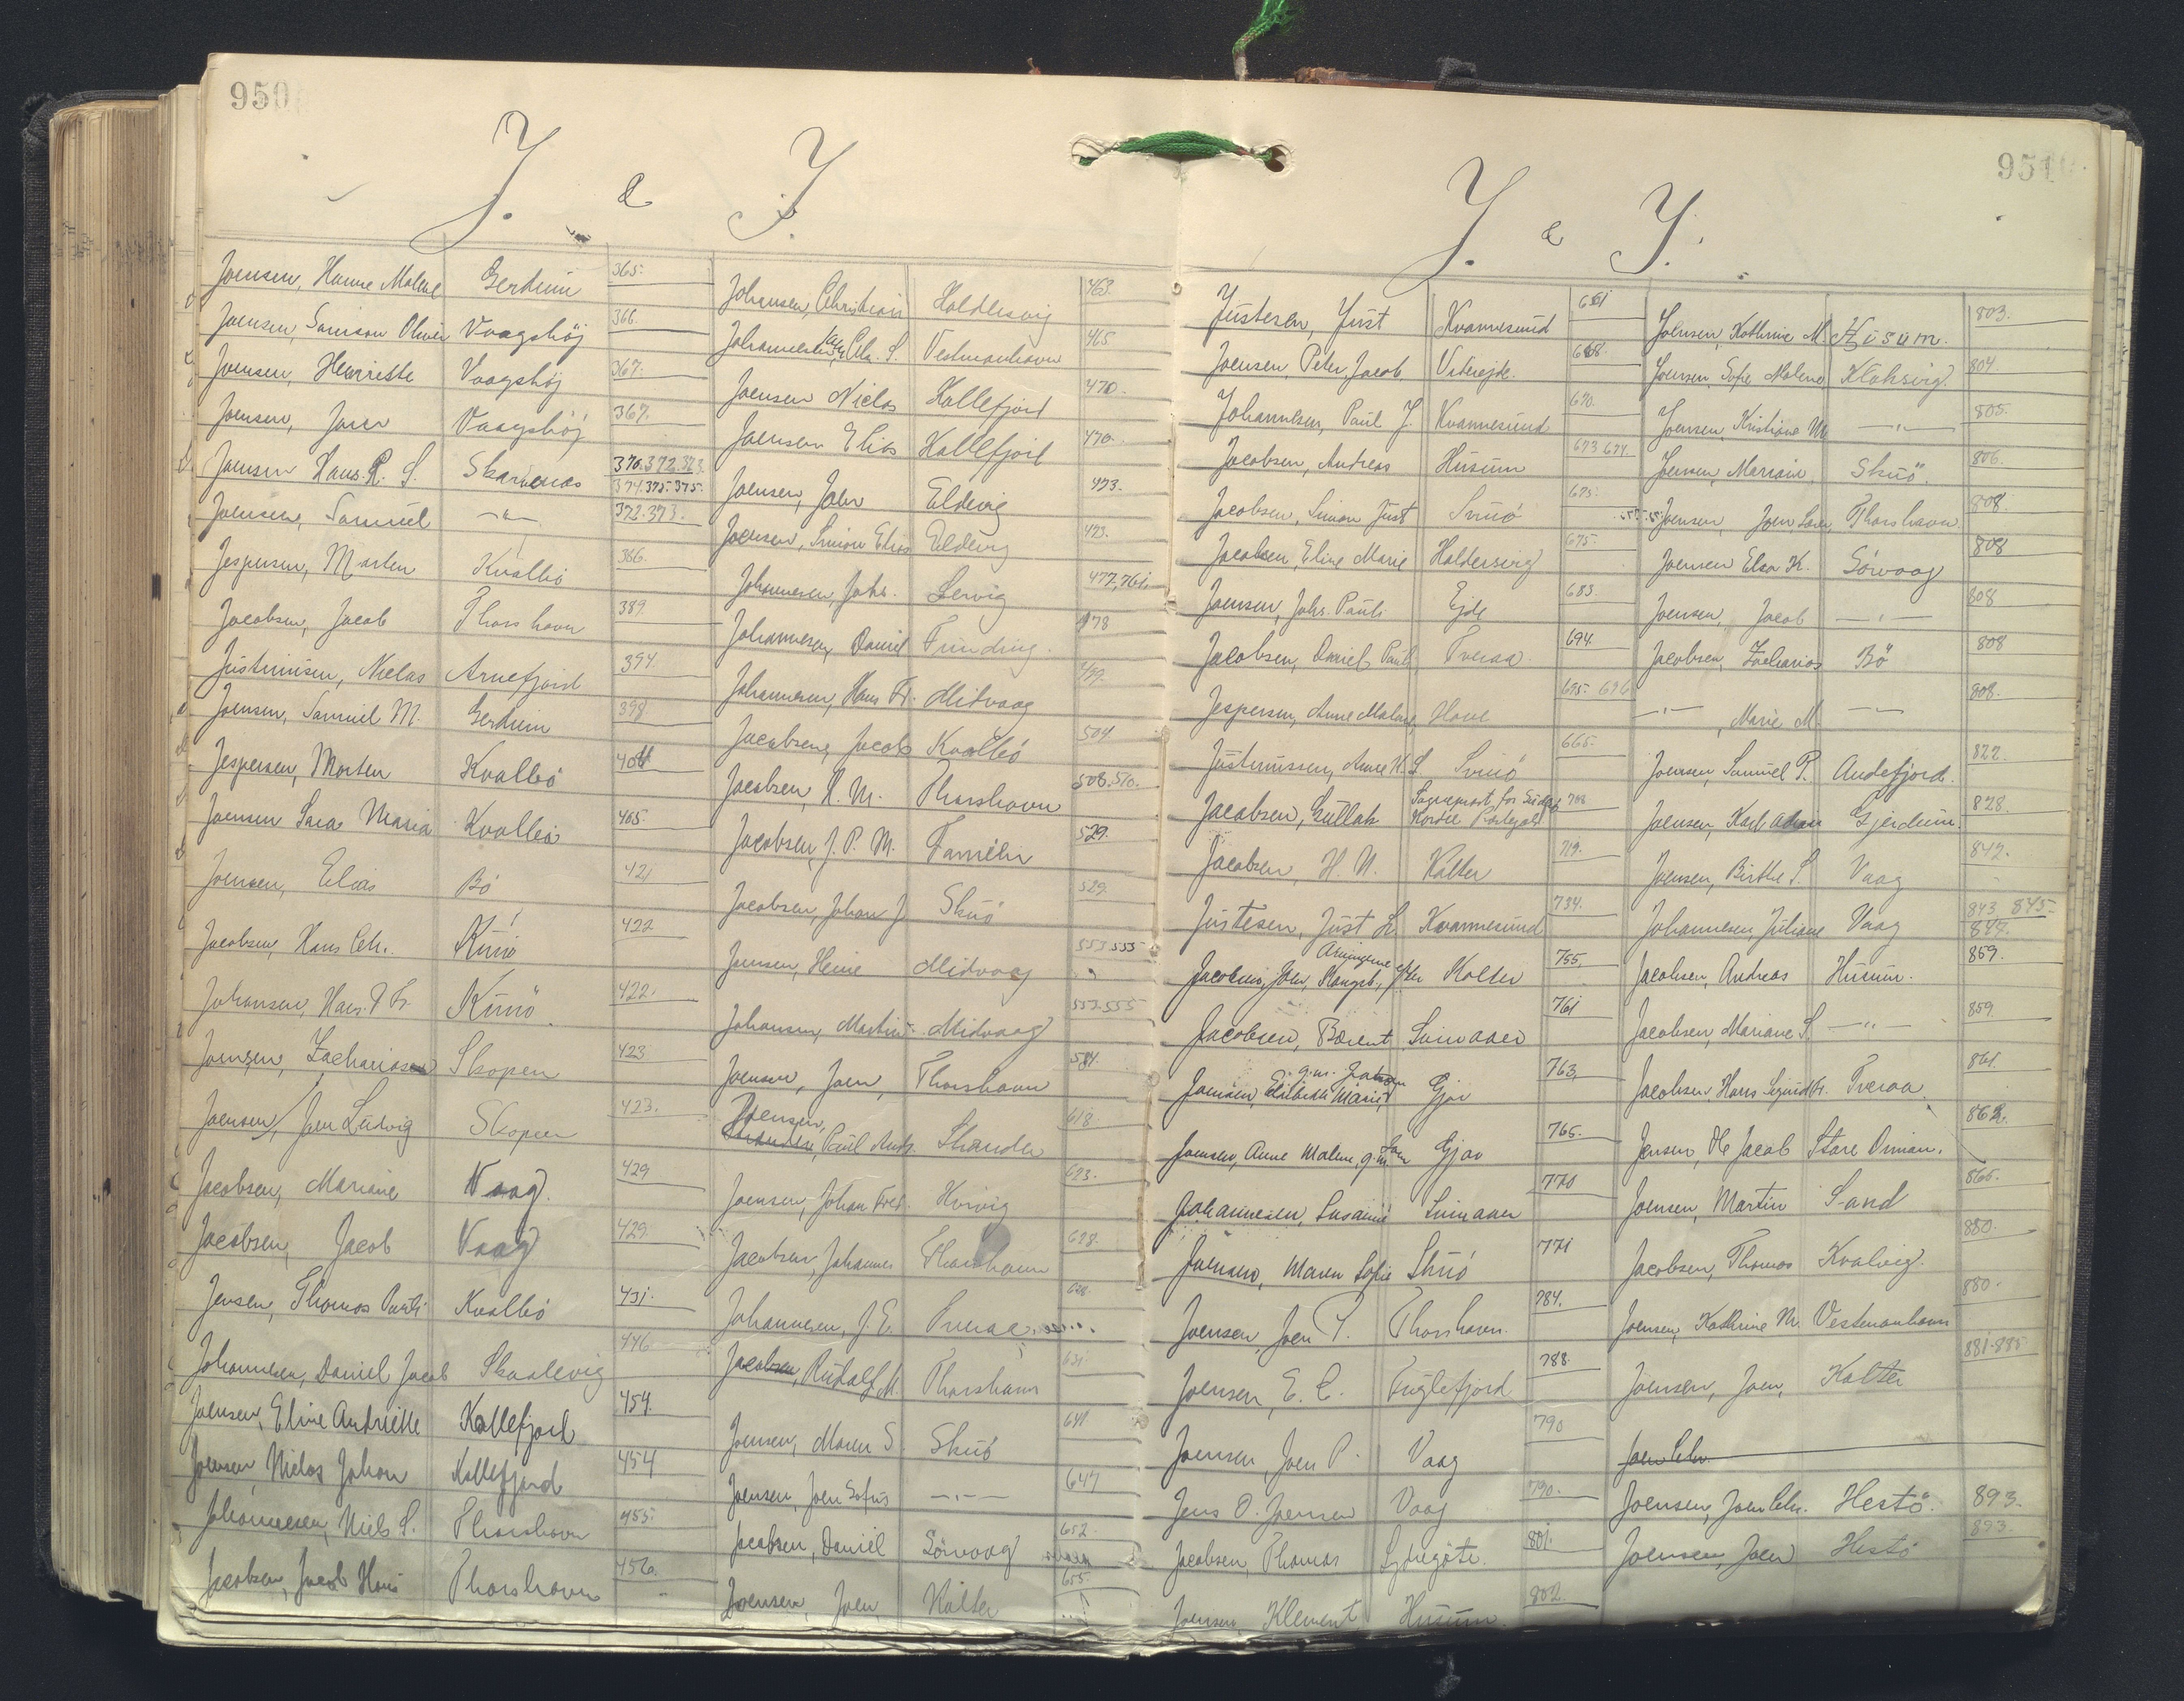 950
J. & J.
Joensen, Hanne Malene Gerdum 365.
Joensen, Samson Oliver Vaagshöj 366.
Joensen, Henriette Vaagshöj 367.
Joensen, Vaagshöj 367.
Joensen Hans R. S. Skarvenes 370.372.373.
374.375.375.
Joensen, Samuel —"— 372.373.
Jespersen, Morten Kvalbö 386.
Jacobsen, Jacob Thorshavn 389.
Justinusen, Niclas Arnefjord 394.
Joensen, Samuel M. Gerdum 398
Jespersen, Morten Kvalbö
Joensen Sara Maria Kvalbö 405.
Joensen, Elias Bö 421
Jacobsen, Hans Chr. Kunö 422
Johansen, Hans P. Fr. Kunö. 422.
Joensen, Zacharias Skopen 423
Joensen, Joen Ludvig Skopen 423.
Jacobsen, Mariane Vaag. 429
Jacobsen, Jacob Vaag 429.
Jensen, Thomas Pauli Kvalbö 431.
Johannesen, Daniel Jacob Skaalevig 446
Joensen, Eline Andriette Kollefjord 454
Joensen, Niclas Johan Kollefjord 454
Johannesen, Niels S. Thorshavn 455.
Jacobsen, Jacob Hans Thorshavn 456.
Johansen, Christian Haldersvig 463.
Johannesen, Chr. S. Vestmanhavn 465
Joensen Niclas Kollefjord 470.
Joensen Elias Kollefjord 470.
Joensen, Joen Eldevig 473.
Joensen, Simon Elias Eldevig 473.
Johannesen, Johs. Lervig 477,761.
Johannesen, Daniel Funding. 478
Johannesen, Hans Fr. Midvaag 499.
Jacobsen, Jacob Kvalbö 504.
Jacobsen, H. M. Thorshavn 508.510.
Jacobsen, J. P. M. Famiën 529.
Jacobsen, Johan J. Skuö 529.
Joensen, Heine Midvaag 553 555
Johansen, Martin Midvaag 553.555
Joensen, Joen, Thorshavn 584.
Joensen,
Paul Andr. Strander 618.
Joensen, Johan Fred. Hvivig 623.
Jacobsen, Johannes Thorshavn 628.
Johannesen, J. E. Tveraa. 628.
Jacobsen, Rudolf M. Thorshavn 631
Joensen, Maren S. Skuö 641
Joensen, Joen Sofus —"— 647
Jacobsen, Daniel Sörvaag 652
Joensen, Joen Kolter 655
951
J. & J.
Justesen, Just Kvannesund 661
Joensen, Peter Jacob Videreide. 668.
Johannesen, Paul J. Kvannesund 670.
Jacobsen, Andreas Husum 673 674
Jacobsen, Simon Just Svinö 675.
Jacobsen, Eline Marie Haldersvig 675.
Joensen, Johs. Pauli Ejde 683.
Jacobsen, Daniel Pauli Tveraa 694.
Jespersen, Anne Malene, Hove 695. 696
Justinussen, Anne H. S. Svinö 665.
Jacobsen, Gullak Sogneprost for
Jacobsen, H. N. Kolter 719.
Justesen, Just L. Kvannesund 734.
Arvingerne efter
Jacobsen, Joen, Kongsb., Kolter 755.
Jacobsen, Barent Sumbaaer 761
g.m.
Joensen, Elisabeth Marie, Gjov 763.
Joensen, Anne Malene, g.m. Joen Gjov 765.
Johannesen, Susanne 770
Joensen, Maren Sofie Skuö 771
Joensen, Joen P. Thorshavn. 784.
Joensen, E. C. Fuglefjord 788.
Joensen, Joen P. Vaag 790
Jens O. Joensen Vaag 790.
Jacobsen, Thomas Sydregöte. 801.
Joensen, Klement Husum. 802.
Joensen, Kathrine M. Husum. 803.
Joensen, Sofie Malene Klaksvig 804.
Joensen, Kristiane M —"— 805.
Joensen, Mariane, Skuö. 806.
Joensen, Joen Thorshavn. 808.
Joensen Elsa K. Sörvaag 808
Joensen, Jacob —"— 808
Jacobsen, Zacharias Bö 808
—"— , Marie M. —"— 808.
Joensen, Samuel P. Andefjord. 822.
Joensen, Karl Gjerdum. 828.
Joensen, Birthe S. Vaag 842.
Johannesen, Juliane Vaag 843, 845.
844.
Jacobsen, Andreas Husum. 859.
Jacobsen, Mariane S. —"— 859.
Jacobsen, Hans Sigurd Fr. Tveraa. 861.
Jensen, Ole Jacob Store Dimon. 862.
Joensen, Martin Sand 865.
Jacobsen, Thomas Kvalvig. 880.
Joensen, Kathrine M. Vestmanhavn 880.
Joensen, Joen, Kolter 881.885
Joen Chr.
Joensen, Joen Chr. Hestö. 893.
Joensen, Joen Hestö 893.